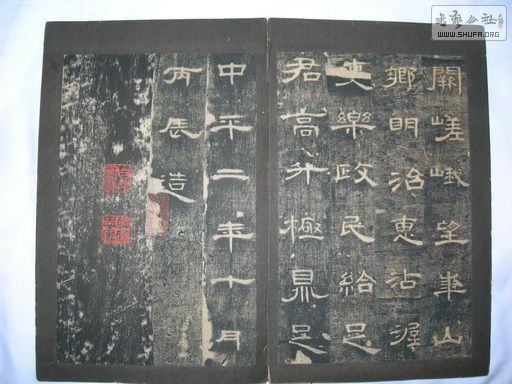 闕嵯峨望華山
鄉明治惠沾渥
吏樂政民給足
君高升極鼎足
中平二年十月
丙辰造
书艺公社
WWW.SHUFA.ORG